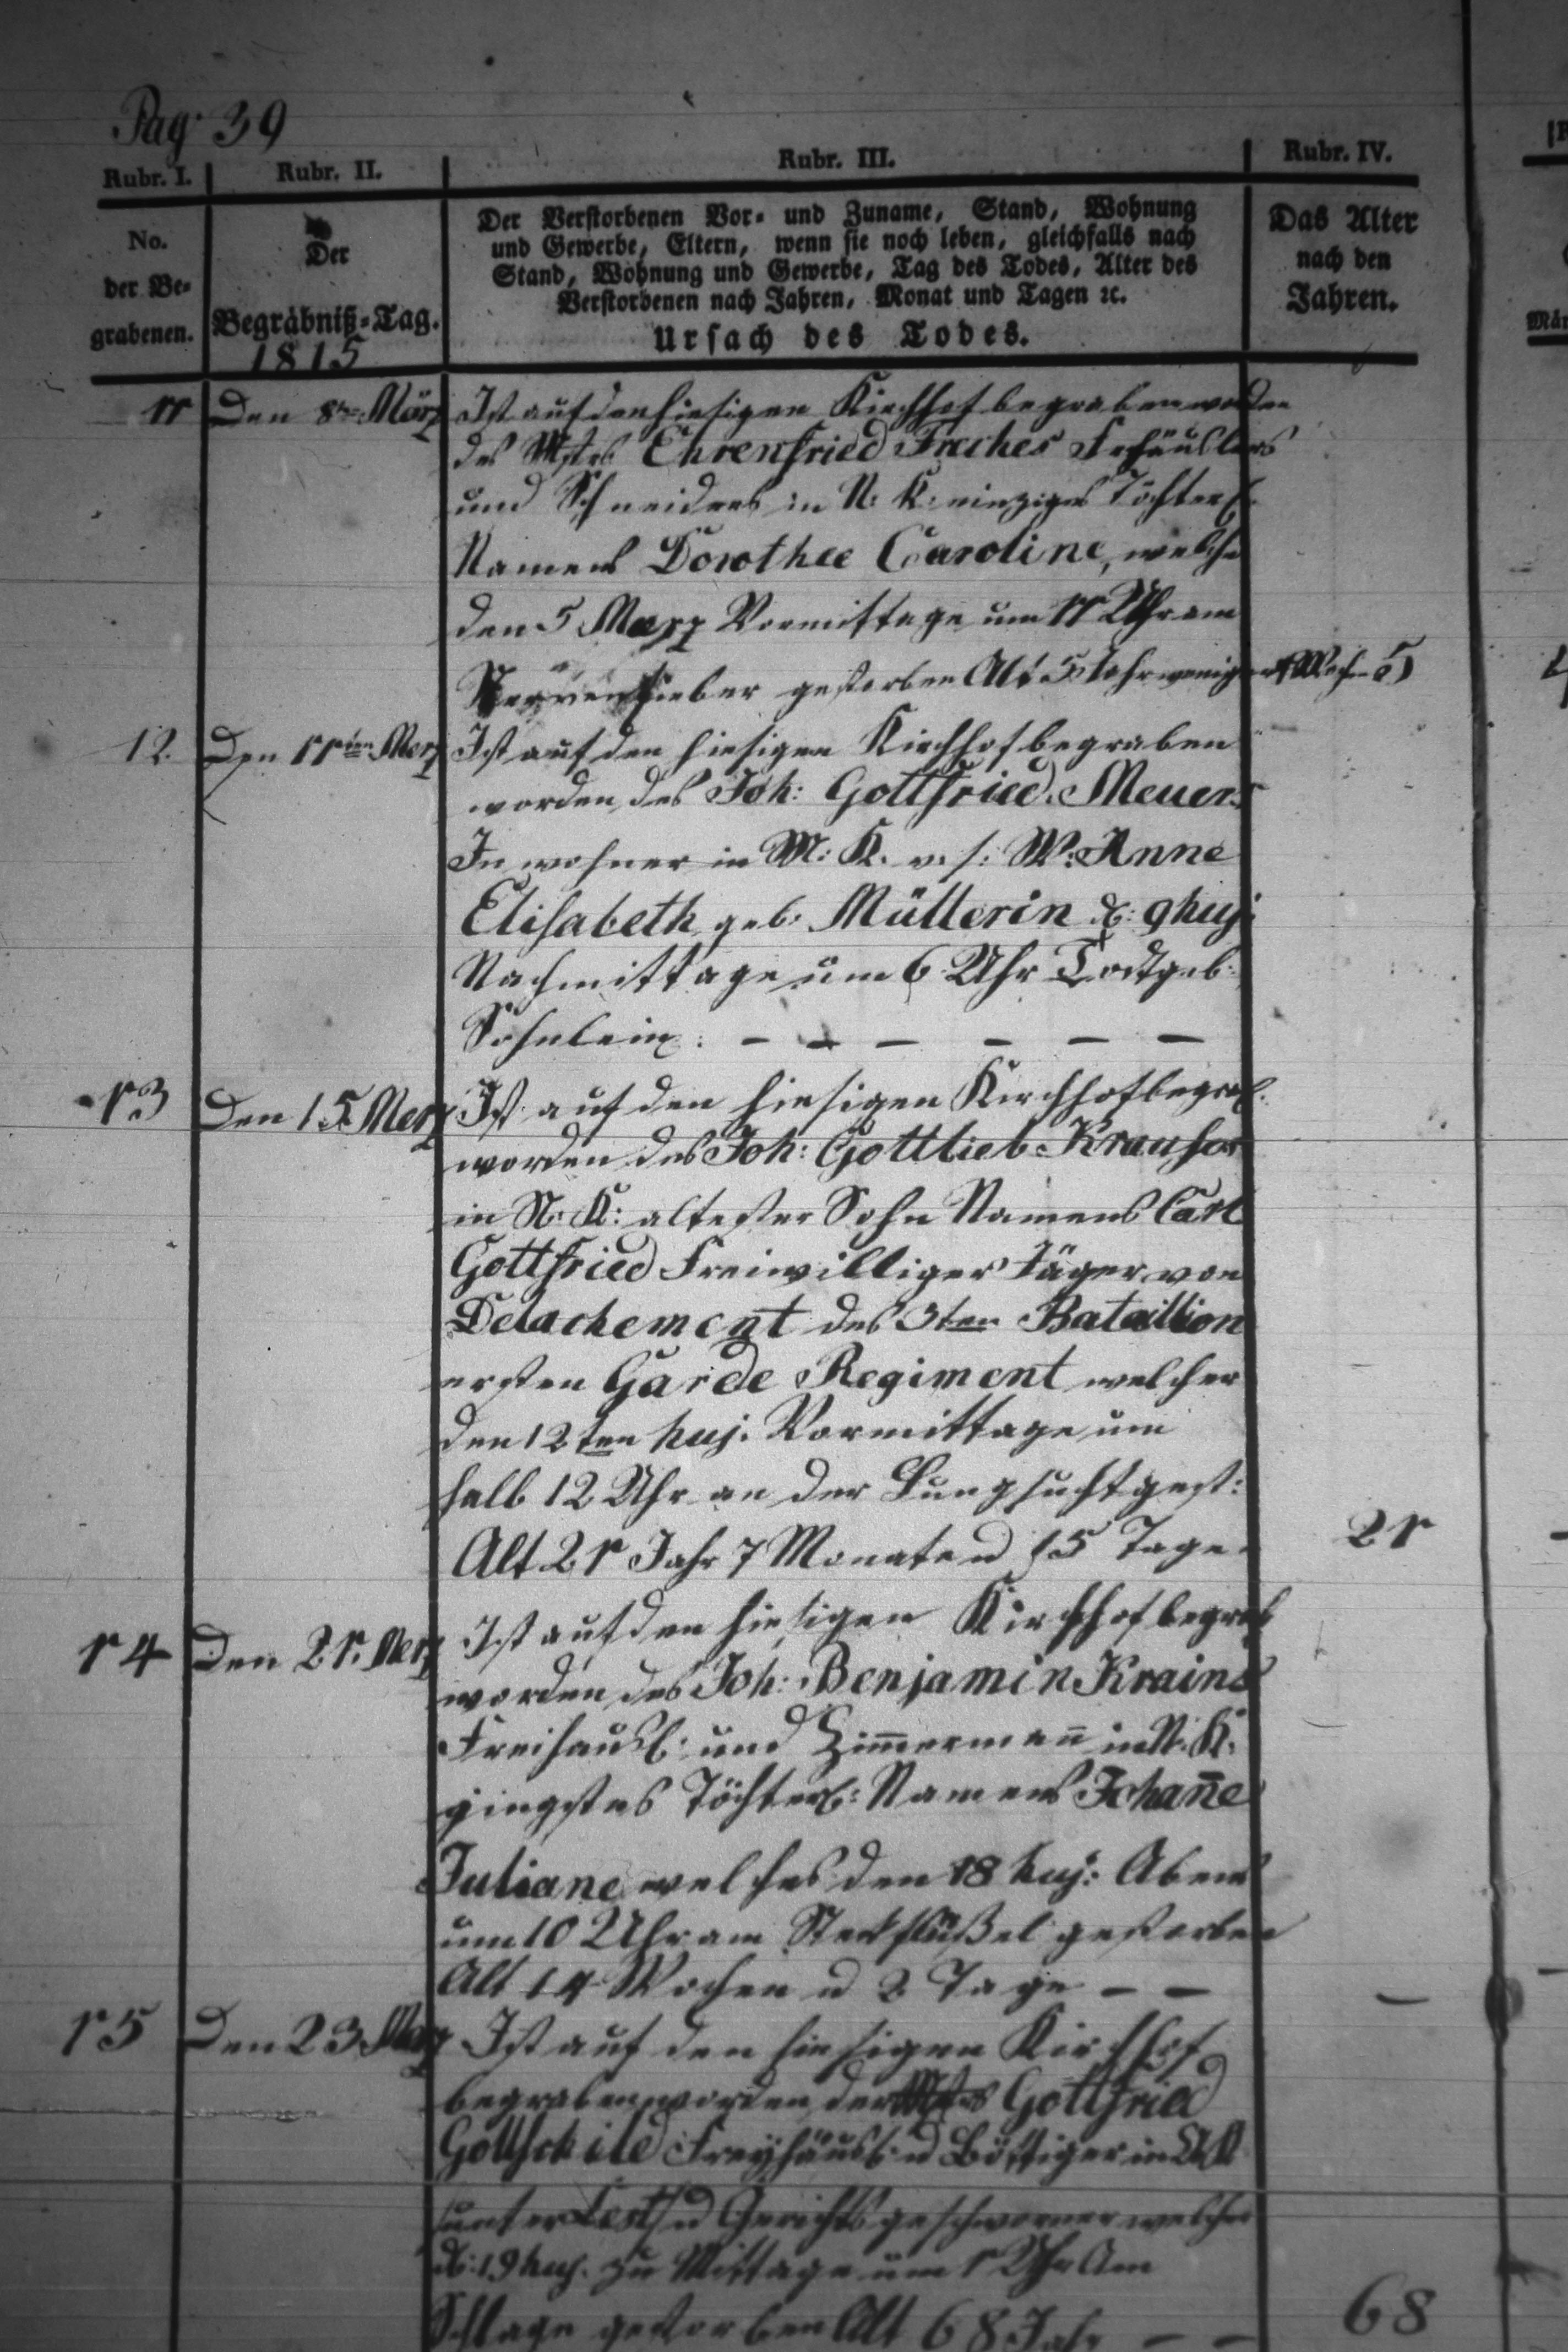 Pag: 39
Rubr. I.
Rubr. II.
Rubr. III.
Rubr. IV.
No. der Be-
grabenen.
Der
Begräbniß-Tag.
1815
Der Verstorbenen Vor- und Zuname, Stand, Wohnung
und Gewerbe, Eltern, wenn sie noch leben, gleichfalls nach
Stand, Wohnung und Gewerbe, Tag des Todes, Alter des
Verstorbenen nach Jahren, Monat und Tagen ꝛc.
Ursach des Todes.
Das Alter
nach den
Jahren.
11 Den 8ten März Ist auf den hiesigen Kirchhof begraben worden
des Mstrs Ehrenfried Freches Frhäuslers
und Schneiders in N: K: einziges Töchterl.
Namens Dorothee Caroline, welche
den 5 Merz Vormittage um 11 Uhr am
Nervenfieber gestorben Alt 5 Jahr weniger
12. Den 11ten Merz Ist auf den hiesigen Kirchhof begraben
worden des Joh: Gottfried Meuers
Inwohner in M: K. v. s: W: Anne
Elisabeth geb: Müllerin d: 9 huj:
Nachmittage um 6 Uhr Todtgeb:
Sohnlein: – – – – – –
13 Den 15 Merz Ist auf den hiesigen Kirchhof begrab.
worden des Joh: Gottlieb Krauses
in N: K: altester Sohn Namens Carl
Gottfried Freiwilliger Jäger von
Detachement des 3ten Bataillion
ersten Garde Regiment welcher
den 12ten huj. Vormittage um
halb 12 Uhr an der Lungsucht gest:
Alt 21 Jahr 7 Monate u 15 Tage. 21
14 Den 21. Merz Ist auf den hiesigen Kirchhof begrab
worden des Joh: Benjamin Krains
Freihausl: und Zim̅erman̅ in N. K.
gingstes Töchterl: Namens Johan̅e
Juliane welches den 18 huj: Abens
um 10 Uhr am Steckflüßel gestorben
Alt 14 Wochen u 2 Tage – – –
15 Den 23 Merz Ist auf den hiesigen Kirchhof
begraben worden der Gottfried
Gottschild Freyhäusl: u Böttiger in
u Gerichtsgeschworner welcher
d: 19 huj. zu Mittage um 1 Uhr Am
Schlage gestorben Alt 68 Jahr – – 68